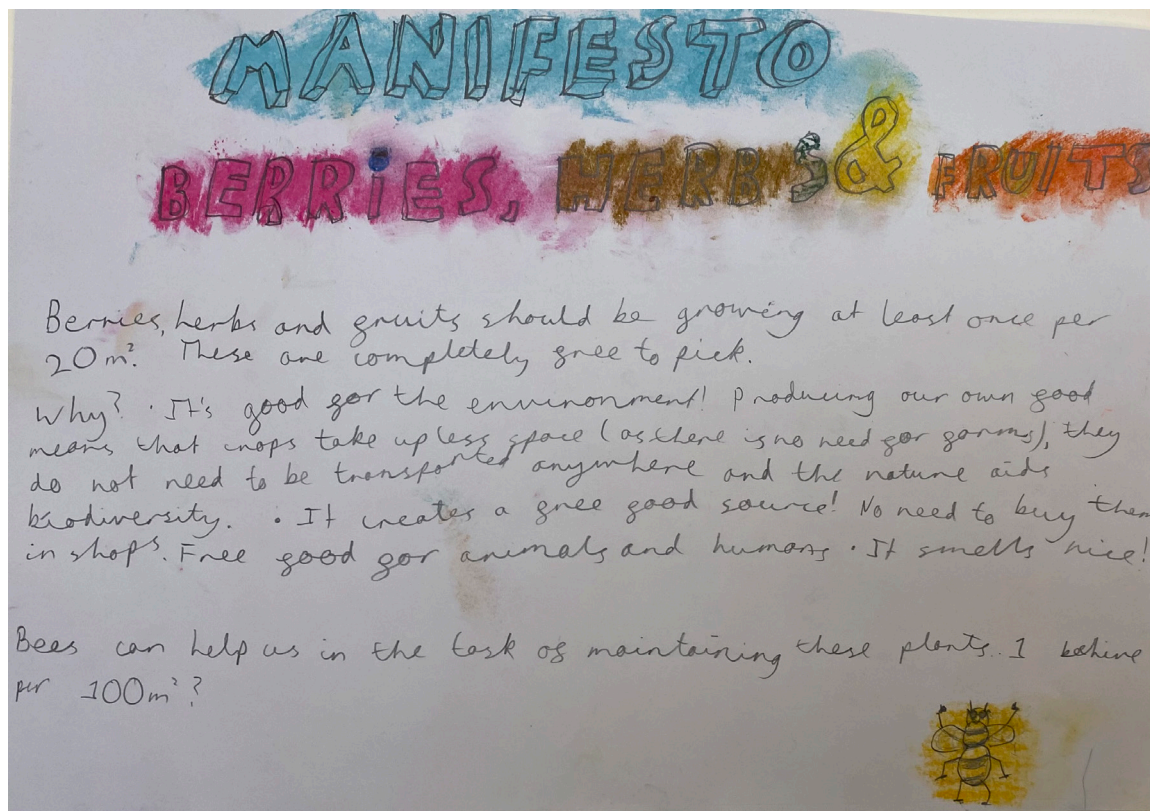 MANIFESTO
BERRiES, HERBS & FRUITS
Berries, herbs and fruits should be growing at least once per
20m². These are completely free to pick.
Why? · It's good for the environment! Producing our own food
means that crops take up less space (as there is no need for farms), they
do not need to be transported anywhere and the nature aids
biodiversity. · It creates a free food source! No need to buy them
in shops. Free food for animals and humans · It smells nice!
Bees can help us in the task of maintaining these plants.. 1 behive
per 100m²?